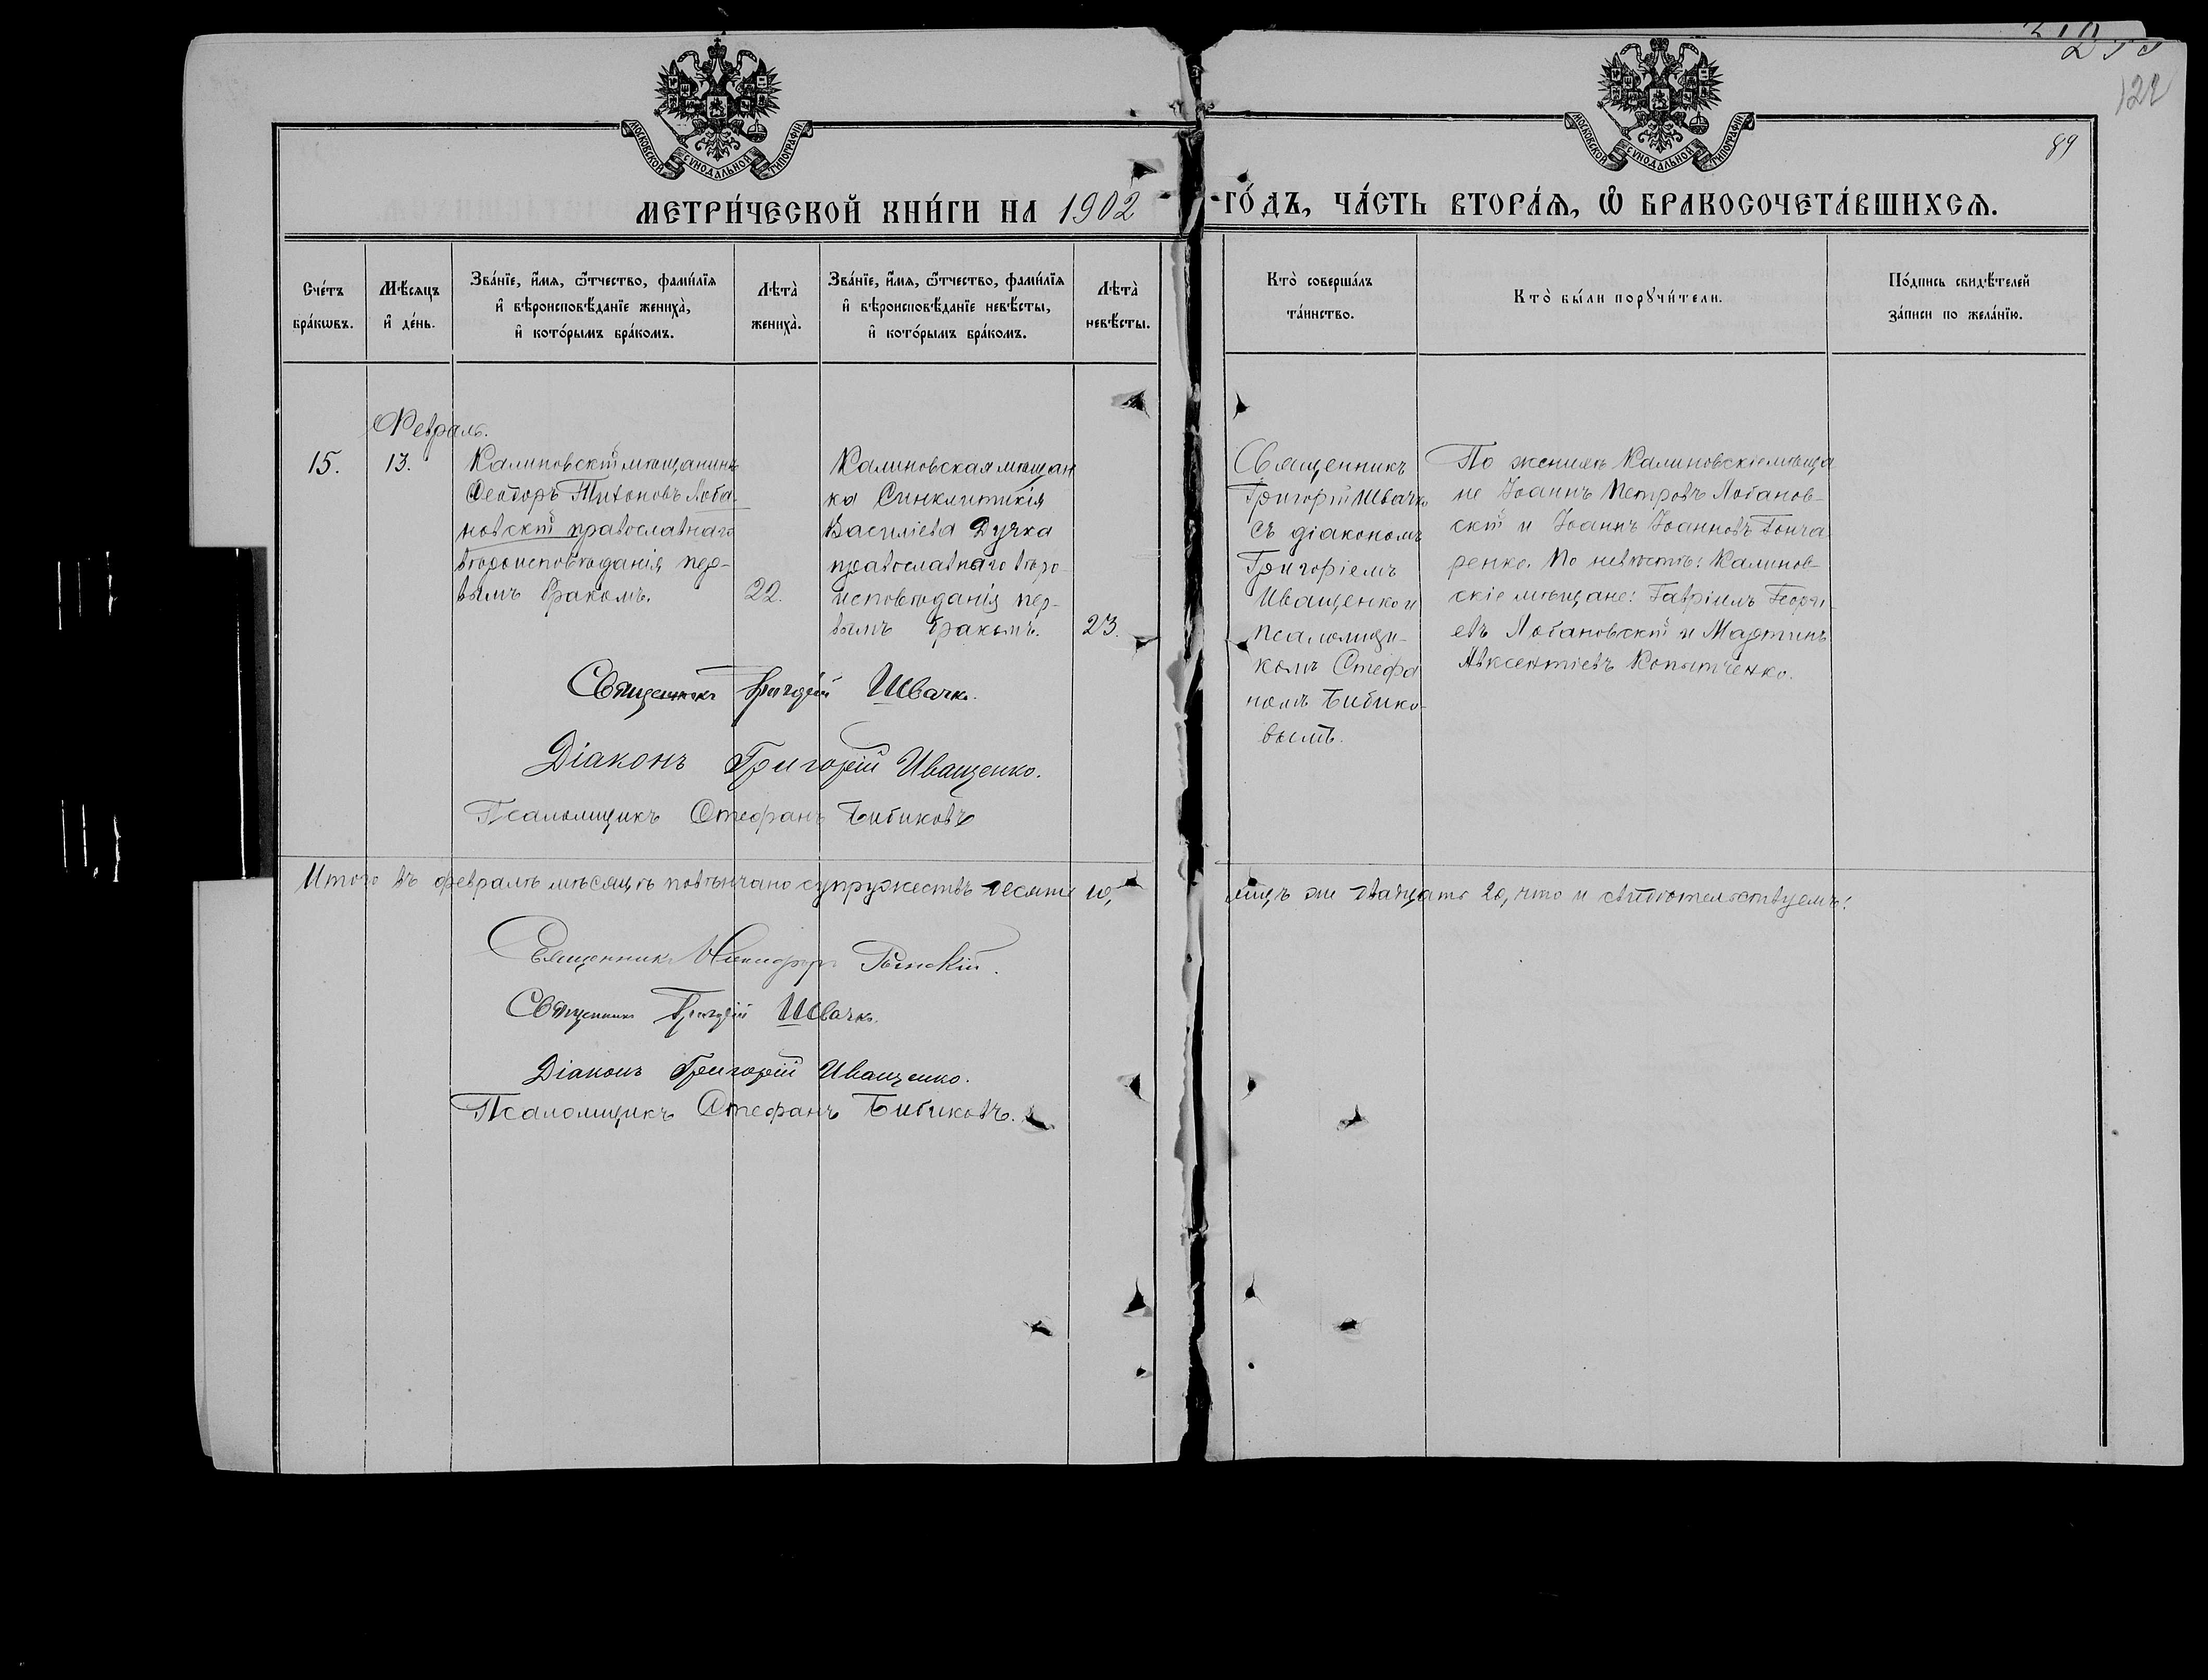 МОСКОВСКОЙ СѴНОДАЛЬНОЙ ТИПОГРАФІИ
МОСКОВСКОЙ СѴНОДАЛЬНОЙ ТИПОГРАФІИ
122
89
МЕТРИ́ЧЕСКОЙ КНИ́ГИ НА 1902 ГО́ДЪ, ЧА́СТЬ ВТОРА́Ѧ, Ѽ БРАКОСОЧЕТА́ВШИХСѦ.
Сче́тъ
бра́кѡвъ.
Мѣ́сяцъ
и҆ де́нь.
Зва́нїе, и҆́мѧ, ѻ҆́тчество, фами́лїѧ
и҆ вѣроисповѣ́данїе жениха̀,
и҆ кото́рымъ бра́комъ.
Лѣта̀
жениха̀.
Зва́нїе, и҆́мѧ, ѻ҆́тчество, фами́лїѧ
и҆ вѣроисповѣ́данїе невѣ́сты,
и҆ кото́рымъ бра́комъ.
Лѣта̀
невѣ́сты.
Кто̀ соверша́лъ
та́инство.
Кто̀ бы́ли порꙋчи́тели.
По́дпись свидѣ́телей
за́писи по жела́нїю.
Февраль.
15.
13.
Калиновскій мѣщанинъ
Ѳеодоръ Титовъ Лоба-
новскій православнаго
вѣроисповѣданія пер-
вымъ бракомъ.
22.
Калиновская мѣщан
ка Синклитикія
Василіева Дучка
православнаго вѣро-
исповѣданія пер-
вымъ бракомъ.
23.
Священникъ
Григорій Швачко
съ діакономъ
Григоріемъ
Иващенко и
псаломщи-
комъ Стефа
номъ Бибико-
вымъ.
По женихѣ Калиновскіе мѣща
не Іоаннъ Петровъ Лобанов-
скій и Іоаннъ Іоанновъ Гонча
ренко. По невѣстѣ: Калинов-
скіе мѣщане: Гавріилъ Георгі-
евъ Лобановскій и Мартинъ
Авксентіевъ Копытченко.
Священникъ Григорій Швачко.
Діаконъ Григорій Иващенко.
Псаломщикъ Стефанъ Бибиковъ
Итого въ февралѣ мѣсяцѣ повѣнчано супружествъ десять 10, лицъ же двадцать 20, что и свидѣтельствуемъ:
Священникъ Никифоръ
Священникъ Григорій Швачко.
Діаконъ Григорій Иващенко.
Псаломщикъ Стефанъ Бибиковъ.